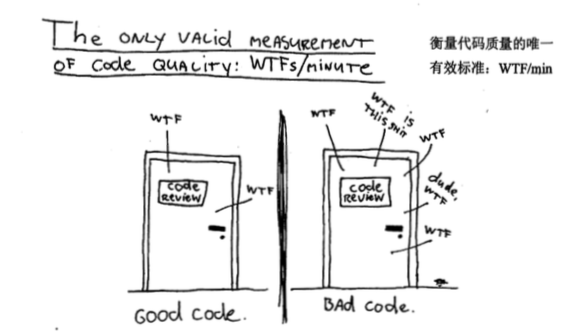 The ONLY VALID MEASUREMENT
OF Code QUALITY: WTFs/MINUTE
衡量代码质量的唯一
有效标准：WTF/min
WTF
code
REVIEW
WTF
Good code.
WTF
WTF IS
THIS SHIT
WTF
code
REVIEW
dude,
WTF
WTF
BAd code.